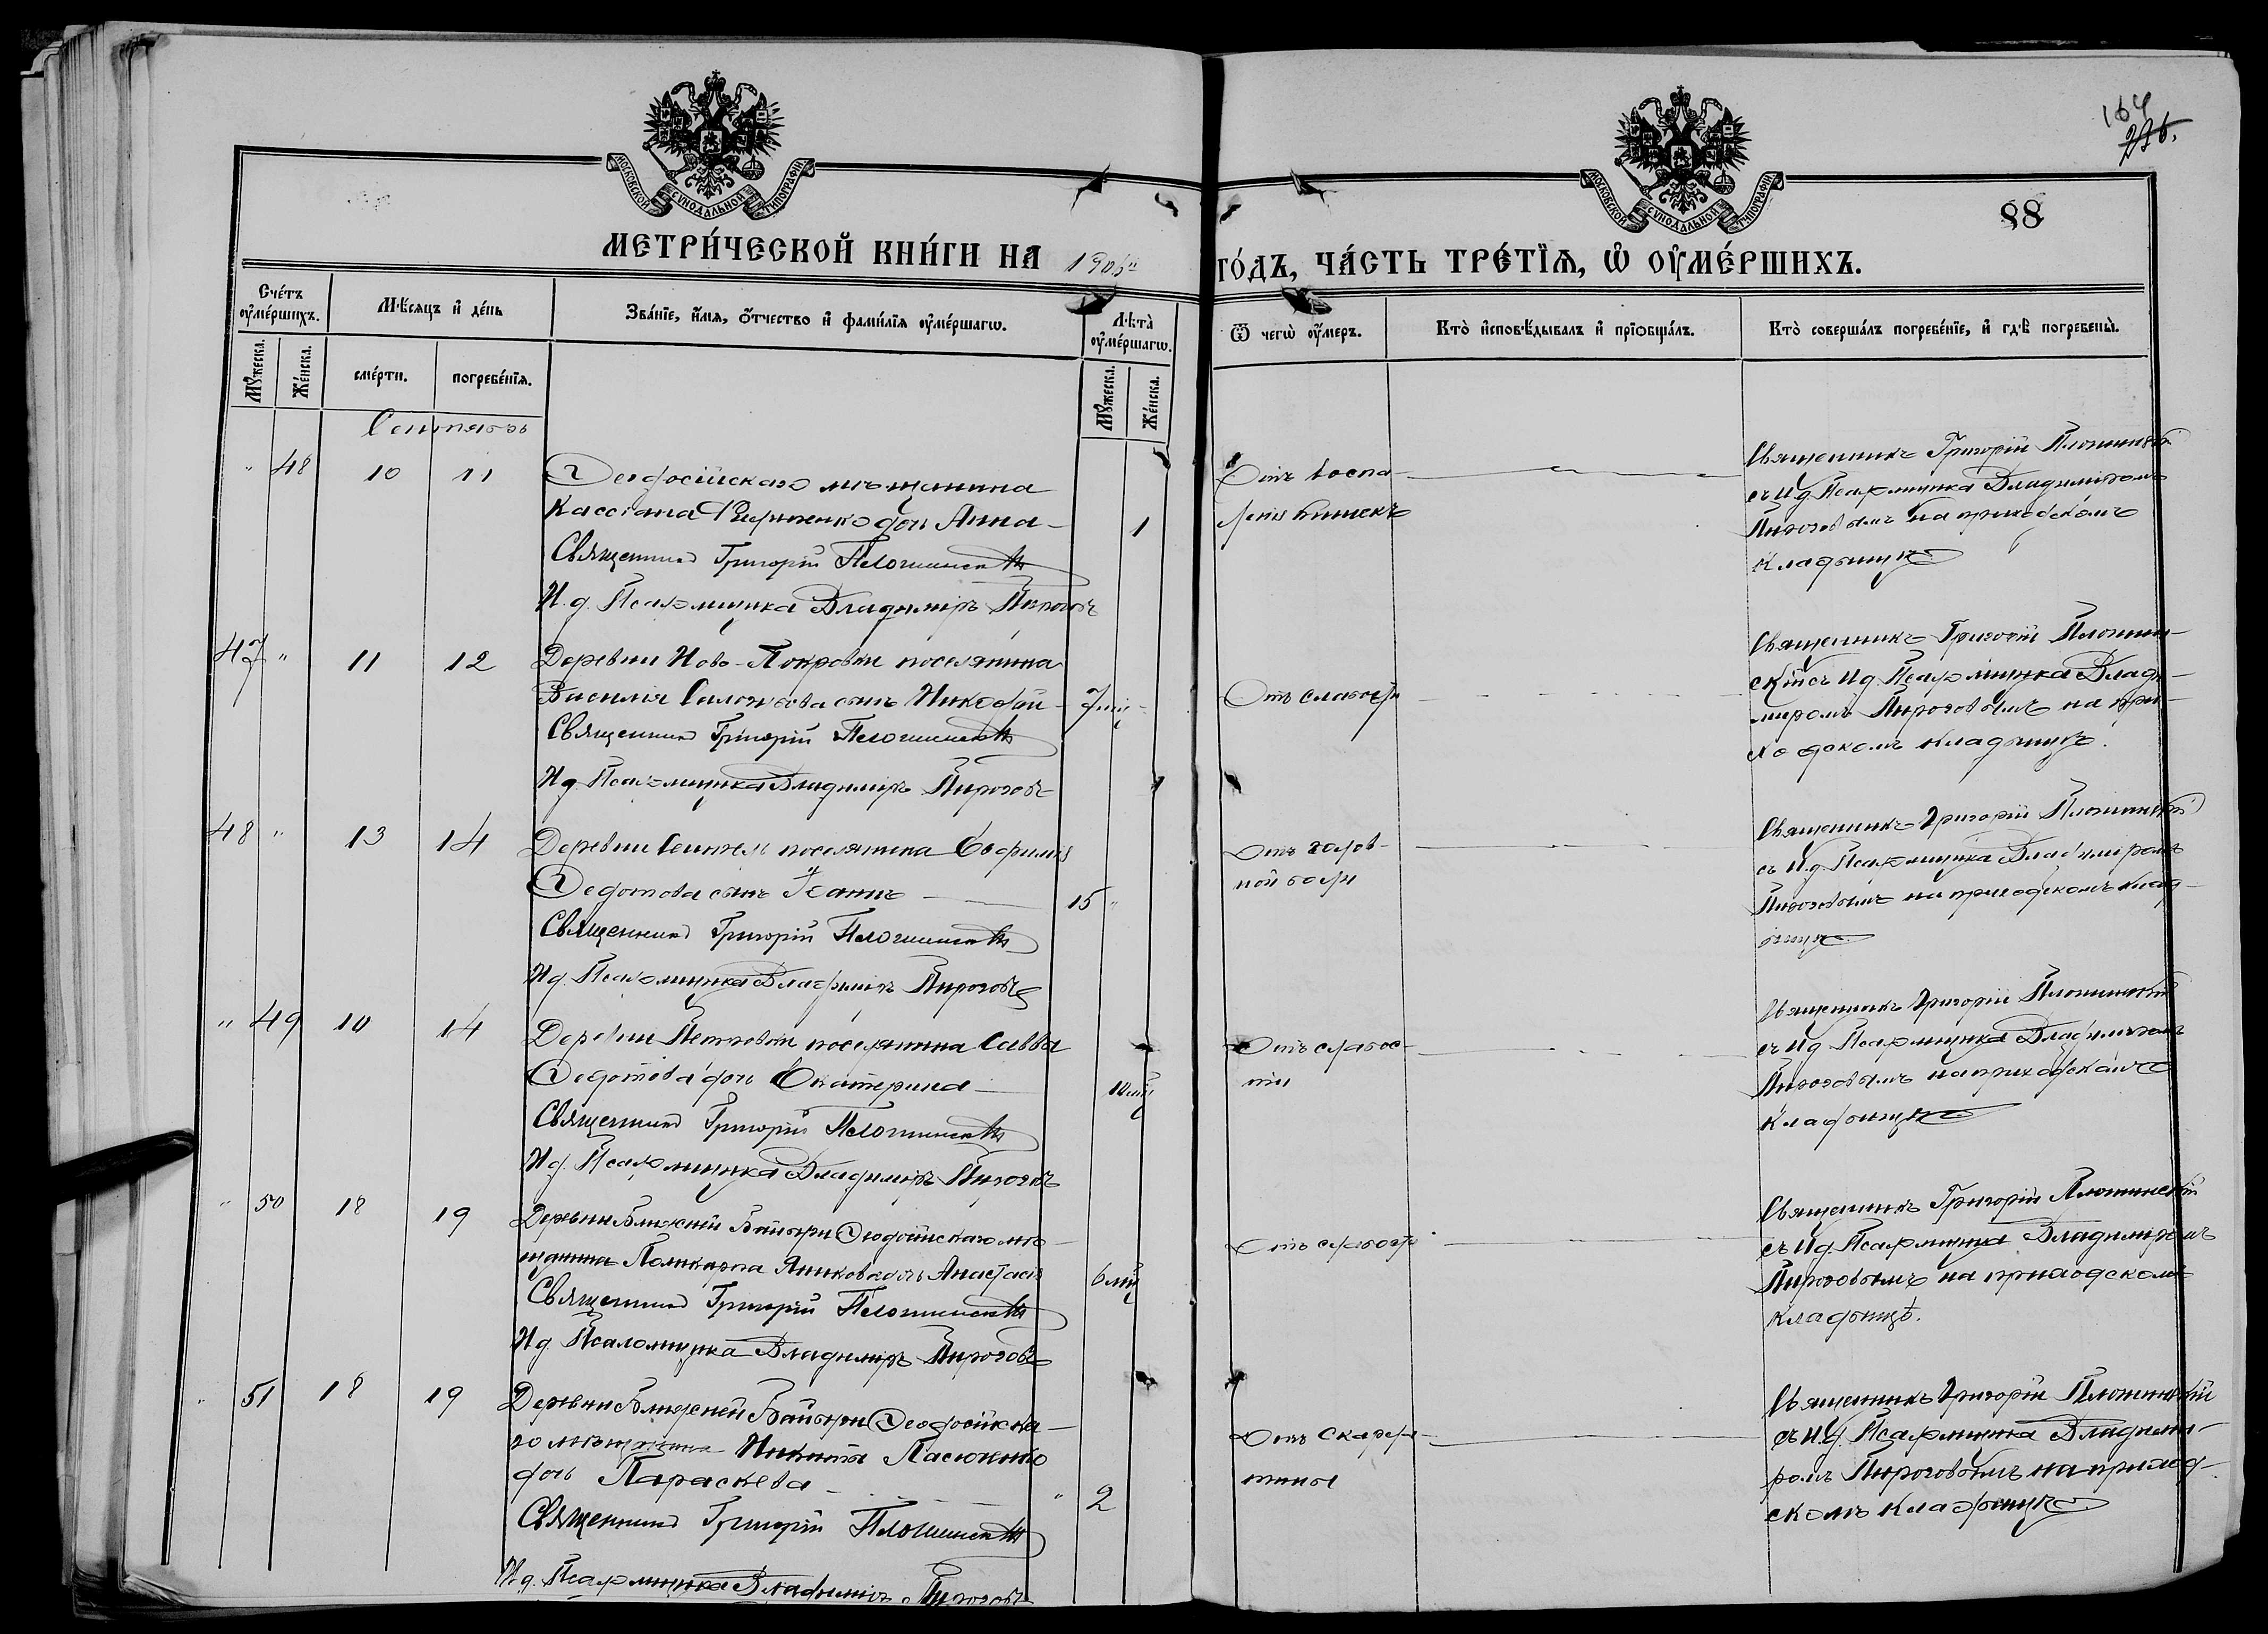 164
286.
МОСКОВСКОЙ СѴНОДАЛЬНОЙ ТИПОГРАФІИ
МОСКОВСКОЙ СѴНОДАЛЬНОЙ ТИПОГРАФІИ
88
МЕТРИ́ЧЕСКОЙ КНИ́ГИ НА 1906й ГО́ДЪ, ЧА́СТЬ ТРЕ́ТЇѦ, Ѡ҆ ОУ҆МЕ́РШИХЪ.
Сче́тъ оу҆ме́ршихъ.
Мѣ́сяцъ и҆ де́нь
Зва́нїе, и҆́мѧ, ѻ҆́тчество и҆ фамі́лїѧ оу҆ме́ршагѡ.
Лѣта̀ оу҆ме́ршагѡ.
Ѿ чегѡ̀ оу҆́меръ.
Кто̀ и҆сповѣ́дывалъ и҆ прїѡбща́лъ.
Кто̀ соверша́лъ погребе́нїе, и҆ гдѣ̀ погребены̀.
Мꙋ́жеска.
Же́нска.
сме́рти.
погребе́нїѧ.
Мꙋ́жеска.
Же́нска.
Сентябрь
" 48 10 11 Ѳеодосійскаго мѣщанина
Кассіана дочь Анна 1
Священникъ Григорій Плошинскій
И. д. Псаломщика Владиміръ Пироговъ
Отъ воспа-
ленія кишекъ
Священникъ Григорій Плошинскій
съ И.д. Псаломщика Владиміромъ
Пироговымъ на приходскомъ
кладбищѣ
47 " 11 12 Деревни Ново-Покровки поселянина
Василія сынъ Николай 7 мѣс
Священникъ Григорій Плошинскій
И.д. Псаломщика Владиміръ Пироговъ
Отъ слабости
Священникъ Григорій Плошин-
скій съ И.д. Псаломщика Влади-
міромъ Пироговымъ на при-
ходскомъ кладбищѣ.
48 " 13 14 Деревни поселянина Евфимія
Ѳедотова сынъ Іоаннъ 15 "
Священникъ Григорій Плошинскій
И.д. Псаломщика Владиміръ Пироговъ
Отъ голов-
ной боли
Священникъ Григорій Плошинскій
съ И.д. Псаломщика Владиміромъ
Пироговымъ на приходскомъ клад-
бищѣ
" 49 10 14 Деревни Петровки поселянина Савва
Ѳедотова дочь Екатерина 10 мѣс
Священникъ Григорій Плошинскій
И.д. Псаломщика Владиміръ Пироговъ
Отъ слабос-
ти
Священникъ Григорій Плошинскій
съ И.д. Псаломщика Владиміромъ
Пироговымъ на приходскомъ
кладбищѣ
" 50 18 19 Деревни Ближней Байбуги Ѳеодосійскаго мѣ-
щанина Поликарпа дочь Анастасія 6 мѣс
Священникъ Григорій Плошинскій
И.д. Псаломщика Владиміръ Пироговъ
Отъ слабости
Священникъ Григорій Плошинскій
съ И.д. Псаломщика Владиміромъ
Пироговымъ на приходскомъ
кладбищѣ.
" 51 18 19 Деревни Ближней Байбуги Ѳеодосійска-
го мѣщанина Никиты Пасюченко
дочь Параскева " 2
Священникъ Григорій Плошинскій
И.д. Псаломщика Владиміръ Пироговъ
Отъ скарла-
тины
Священникъ Григорій Плошинскій
съ И.д. Псаломщика Владимі-
ромъ Пироговымъ на приход-
скомъ кладбищѣ